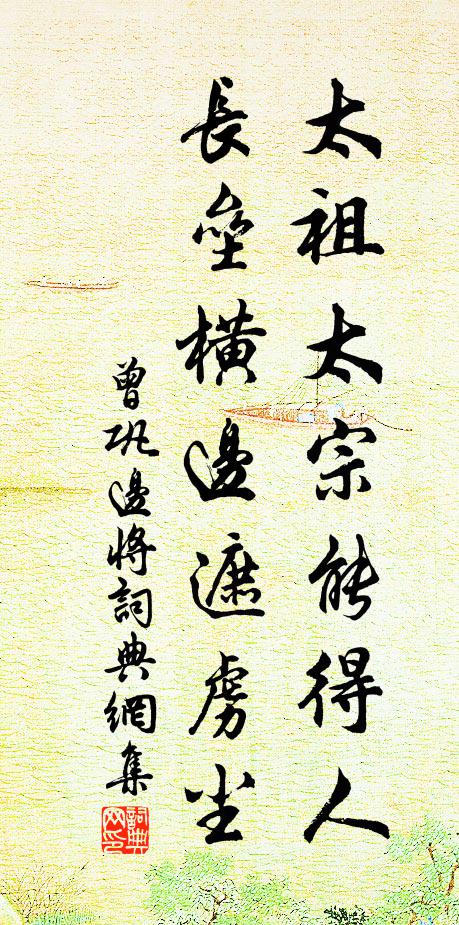 太祖太宗能得人
長壘橫邊遮虜尘
曾巩邊將詞典網集
詞典
网印